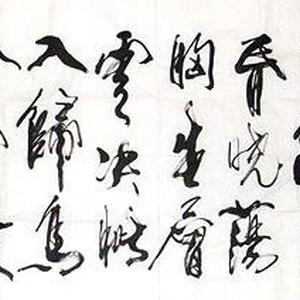 昏曉蕩
胸生層
雲决眦
入歸鳥